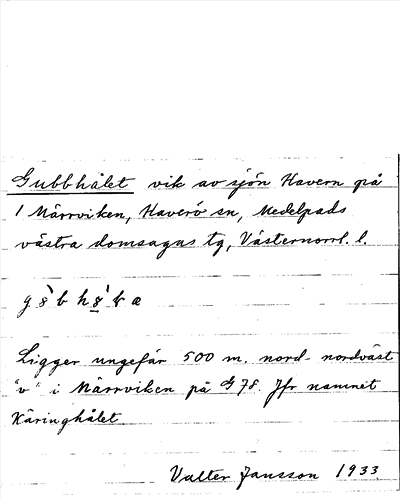 Gubbhålet vik av sjön Havern på
1 Märrviken, Haverö sn, Medelpads
västra domsagas tg, Västernorrl. l.
Ligger ungefär 500 m. nord-nordväst
"v" i Märrviken på G 78. Jfr namnet
Käringhålet
Valter Jansson 1933